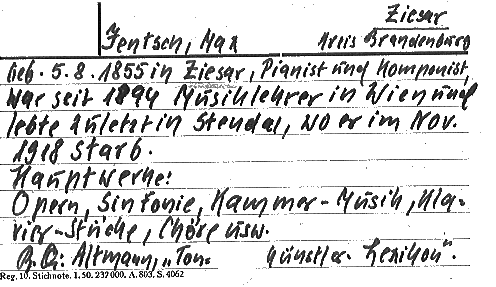 Ziesar
Jentsch, Max Kreis Brandenburg
Geb. 5.8.1855 in Ziesar, Pianist und Komponist,
war seit 1894 Musiklehrer in Wien und
lebte zuletzt in Stendal, wo er im Nov.
1918 starb.
Hauptwerke:
Opern, Sinfonie, Kammer-Musik, Kla-
vier-Stücke, Chöre usw.
B.Q.: Altmann, „Ton- künstler-Lexikon".
Reg. 10. Stichnote. I. 50. 237 000. A. 803. S. 4062